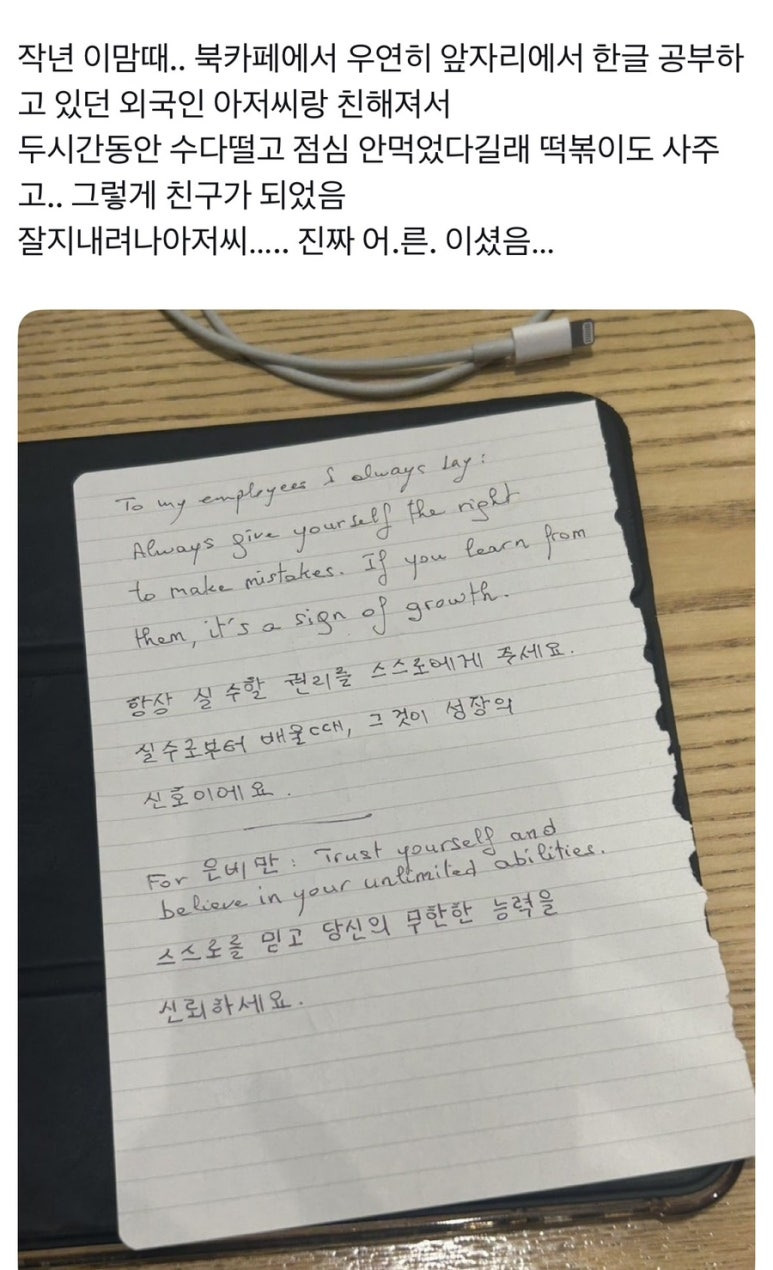 작년 이맘때.. 북카페에서 우연히 앞자리에서 한글 공부하
고 있던 외국인 아저씨랑 친해져서
두시간동안 수다떨고 점심 안먹었다길래 떡볶이도 사주
고.. 그렇게 친구가 되었음
잘지내려나아저씨..... 진짜 어.른. 이셨음...
To my employees I always say:
Always give yourself the right
to make mistakes. If you learn from
them, it's a sign of growth.
항상 실수할 권리를 스스로에게 주세요.
실수로부터 배울때, 그것이 성장의
신호이에요.
For 은비만: Trust yourself and
believe in your unlimited abilities.
스스로를 믿고 당신의 무한한 능력을
신뢰하세요.